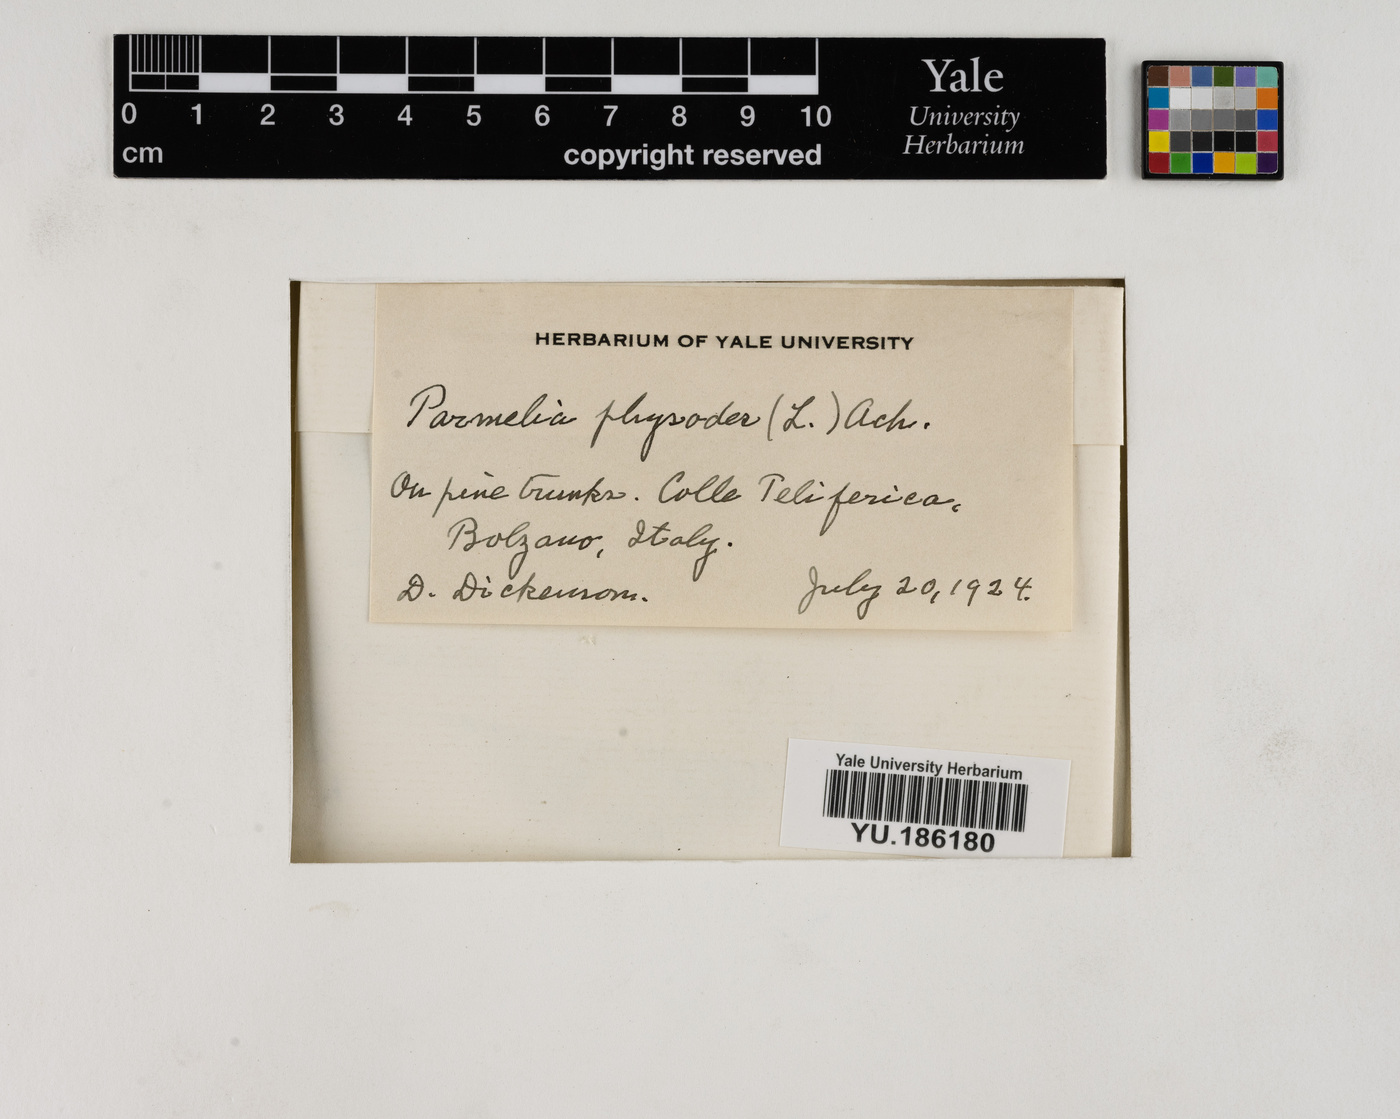 0 1 2 3 4 5 6 7 8 9 10
cm
copyright reserved
Yale
University
Herbarium
HERBARIUM OF YALE UNIVERSITY
Parmelia physodes (L.) Ach.
On pine trunks. Colle Teliferica,
Bolzano, Italy.
D. Dickenson. July 20, 1924.
Yale University Herbarium
YU.186180